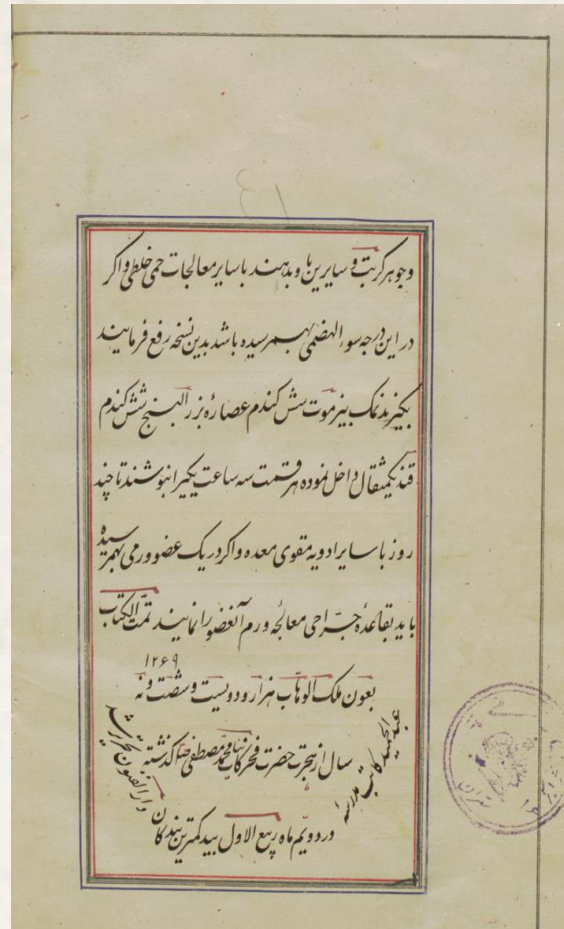 وجوهر کربت و سایرین را و بدهند با سایر معالجات حمی خلطی و اکر
در این درجه سوء الهضمی بهم رسیده باشد بدین نسخه رفع فرمایند
بکیرند نمک بیزموت شش کندم عصارهٔ بزر البنج شش کندم
قند یکمثقال داخل نموده هر قسمت سه ساعت یکبار بنوشند تا چند
روز با سایر ادویه مقوی معده و اکر در یک عضو ورمی بهم رسیده
باید بقاعدهٔ جراحی معالجه ورم آنعضو را نمایند تمت الکتاب
۱۲۶۹
بعون ملک الوهاب هزار و دویست و شصت و نه
سال از هجرت حضرت فخر کاینات محمد مصطفی کذشته
در دویم ماه ربیع الاول بید کمترین بندکان
عبد الحمید کاتب مدرسهٔ
دار الفنون تحریر شد